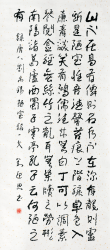 山不在高有仙則名水不在深有龍則靈
斯是陋室惟吾德馨苔痕上階綠草色入
簾青談笑有鴻儒往來無白丁可以調素
琴閱金經無絲竹之亂耳無案牘之勞形
南陽諸葛廬西蜀子雲亭孔子云何陋之
有 錄唐人劉禹錫陋室銘一文